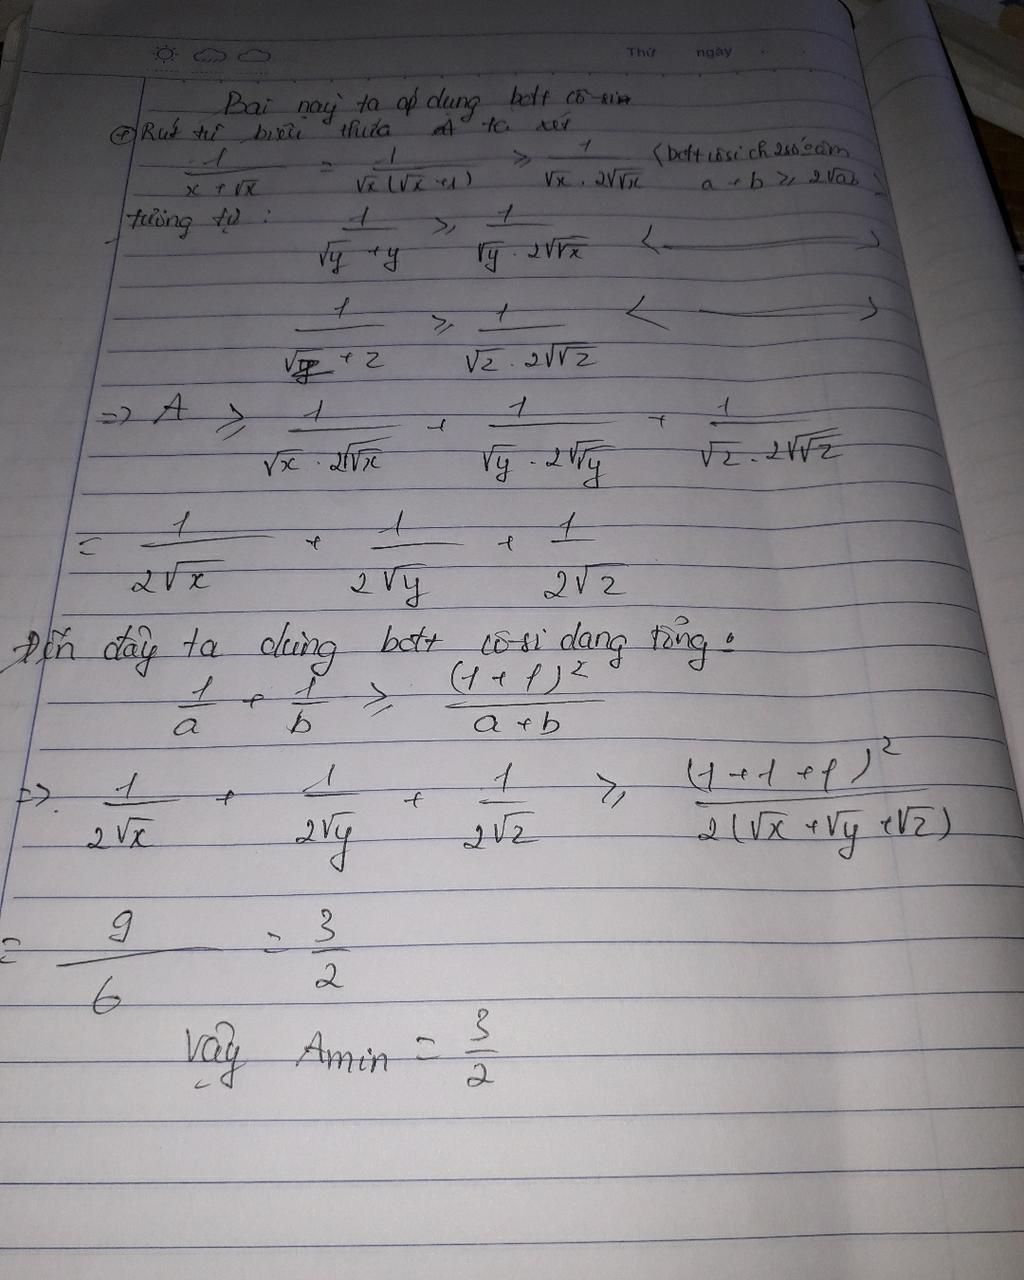 Thứ ngày
Bài này ta áp dụng bđtt cô-sin
+ Rút từ biểu thức A ta xét
1/(x + √x) = 1/(√x(√x + 1)) ≥ 1/(√x . 2√√x) (bđtt côsi ch 2 số
a + b ≥ 2√ab)
tương tự :
1/(√y + y) ≥ 1/(√y . 2√√x) ( ——— )
+ z ≥ 1/(√z . 2√√z) ( ——— )
=> A ≥ 1/(√x . 2√√x) + 1/(√y . 2√√y) + 1/(√z . 2√√z)
= 1/(2√x) + 1/(2√y) + 1/(2√z)
Đến đây ta dùng bđtt cô-si dạng tổng :
1/a + 1/b ≥ (1 + 1)²/(a + b)
=> 1/(2√x) + 1/(2√y) + 1/(2√z) ≥ (1 + 1 + 1)²/(2(√x + √y + √z))
= 9/6 = 3/2
Vậy Amin = 3/2